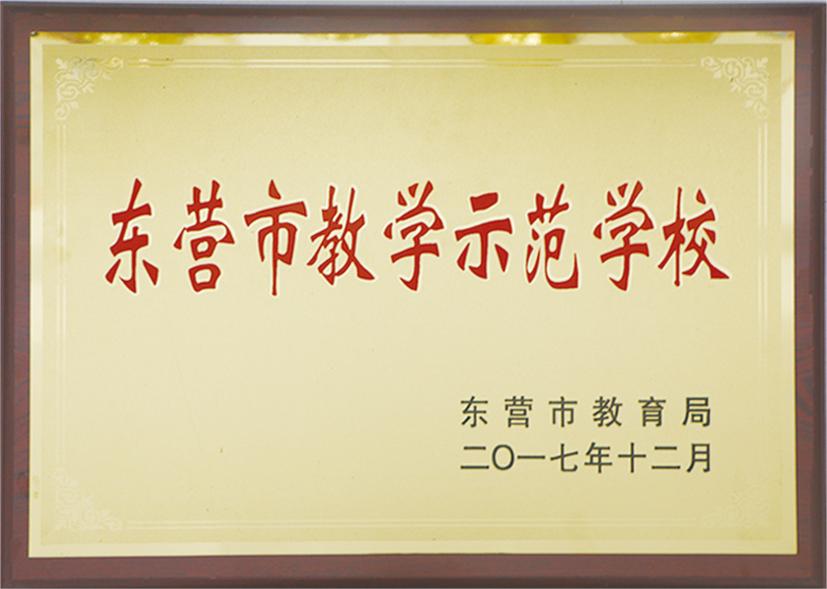 东营市教学示范学校
东营市教育局
二〇一七年十二月